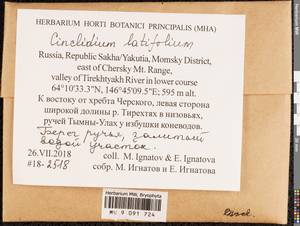 HERBARIUM HORTI BOTANICI PRINCIPALIS (MHA)
Cinclidium latifolium
Russia, Republic Sakha/Yakutia, Momsky District,
east of Chersky Mt. Range,
valley of Tirekhtyakh River in lower course
64°10'33.3"N, 146°45'09.5"E; 595 m alt.
К востоку от хребта Черского, левая сторона
широкой долины р. Тирехтях в низовьях,
ручей Тымны-Улах у избушки коневодов.
Берег ручья, галитый
водой участок.
26.VII.2018 coll. M. Ignatov & E. Ignatova
#18-2518 собр. М. Игнатов и Е. Игнатова
Herbarium MW, Bryophyta
MW 9 091 724